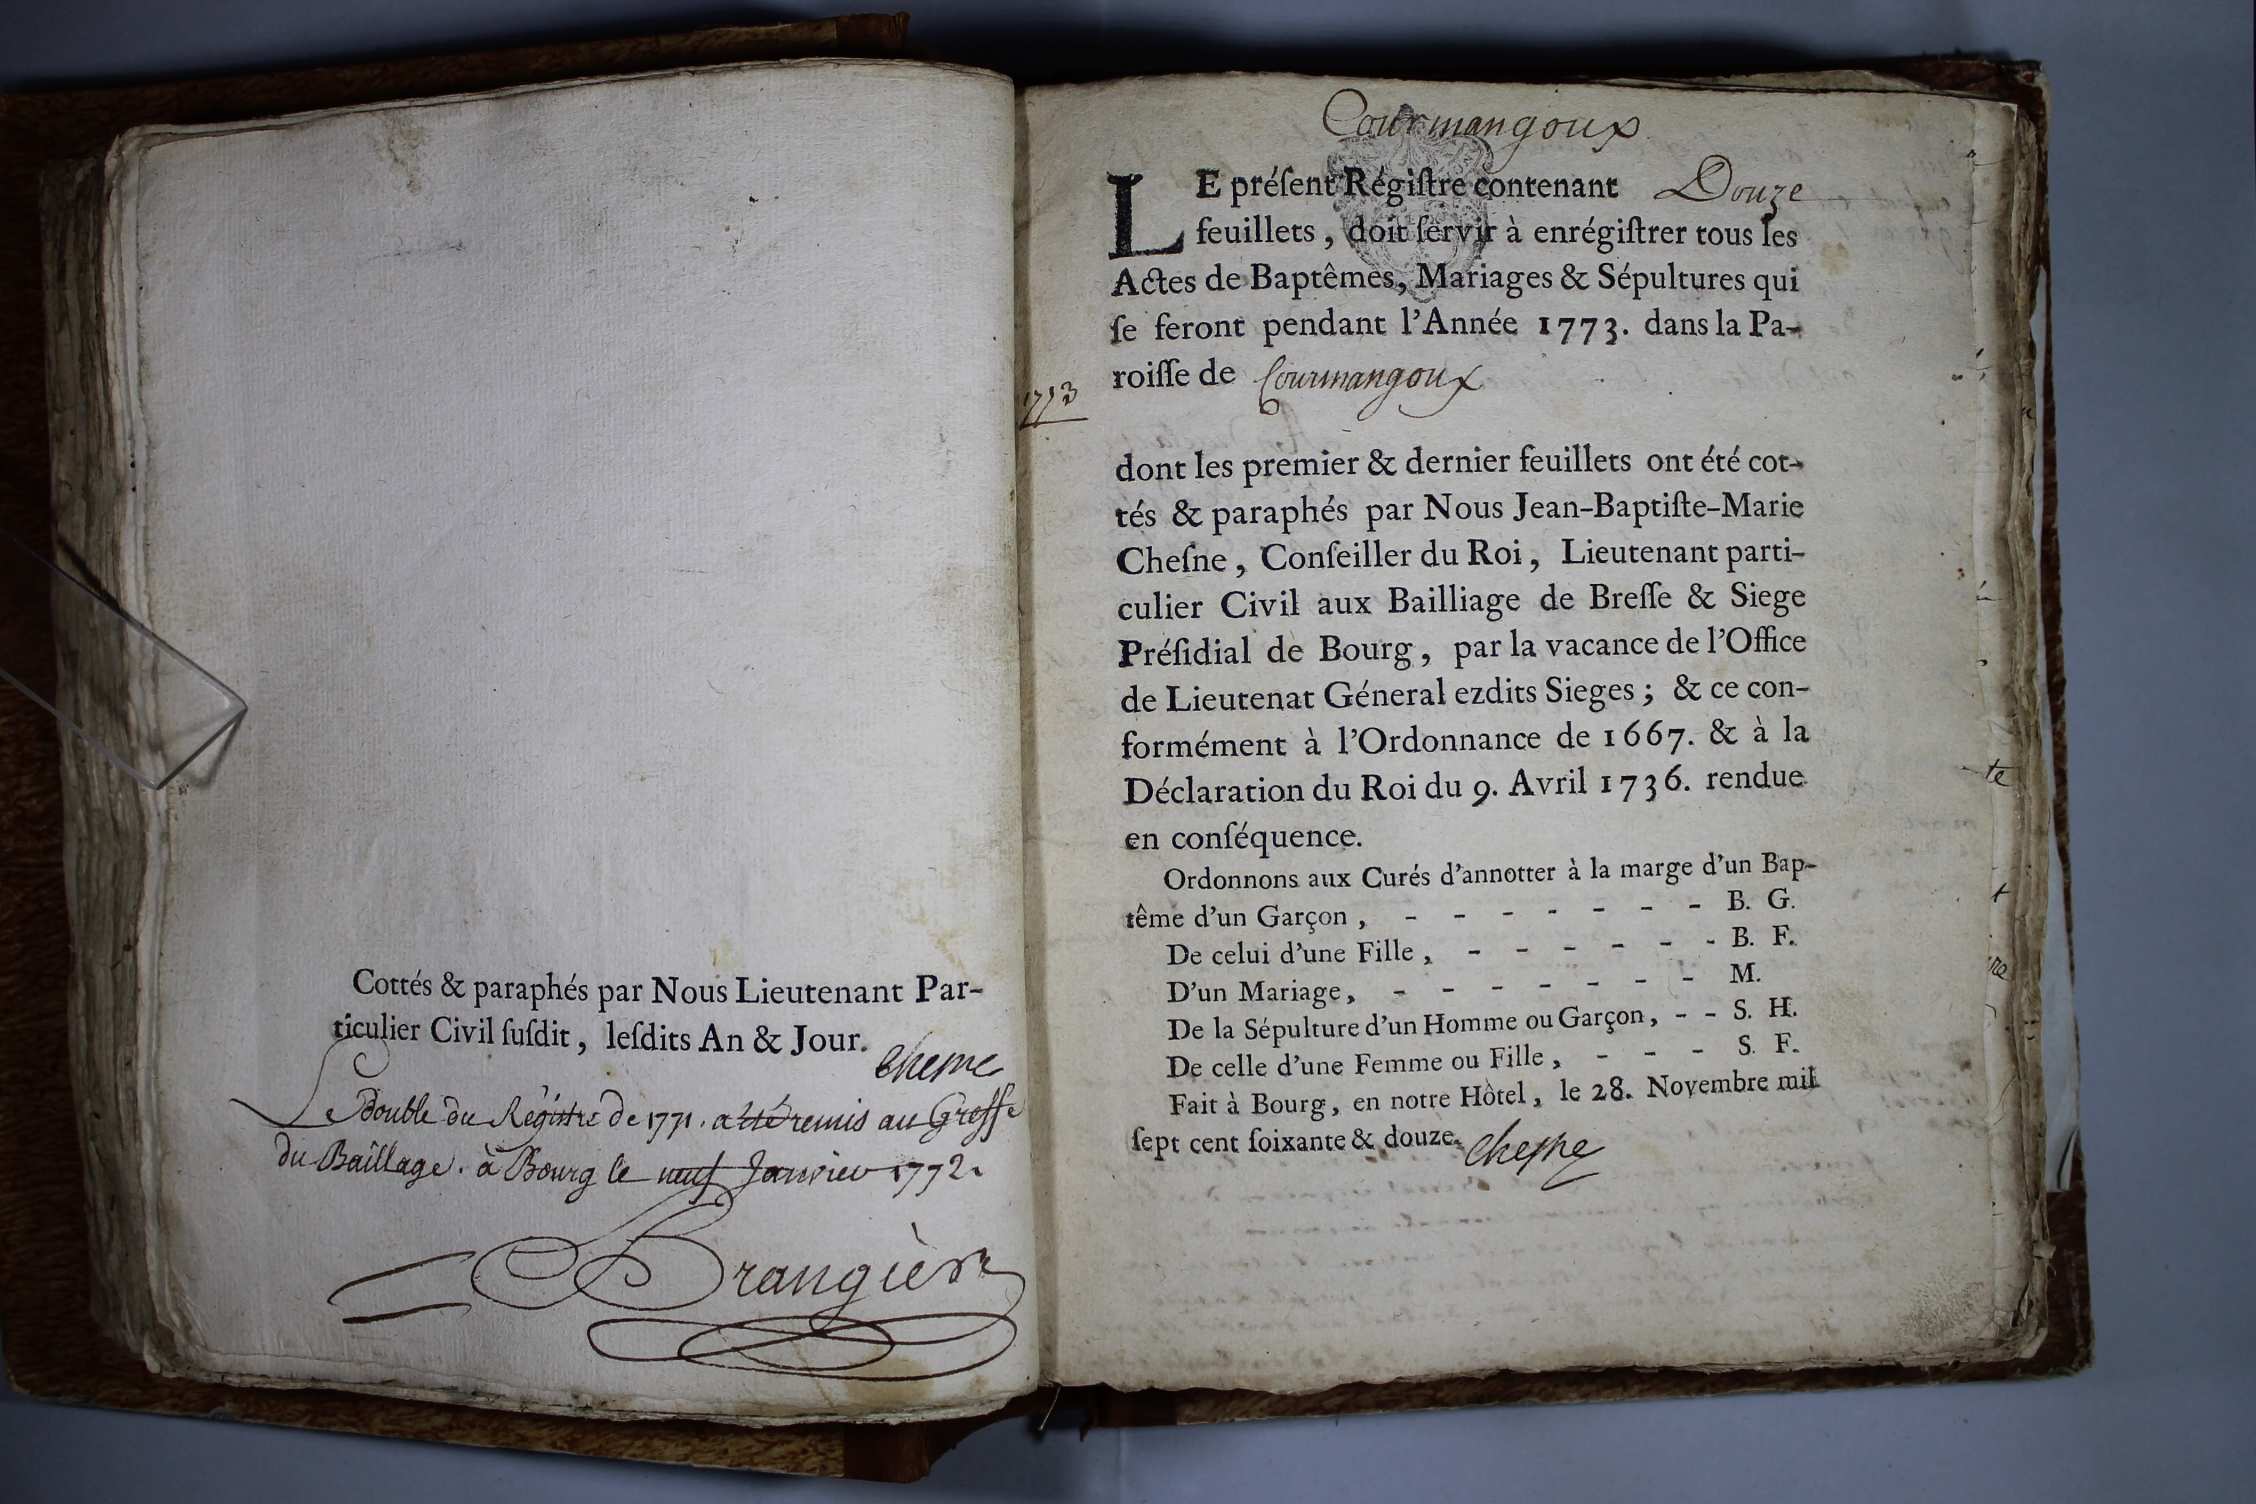 Cottés & paraphés par Nous Lieutenant Par-
ticulier Civil ſuſdit, leſdits An & Jour.
Cheſne
Le double du Régistre de 1771. a été remis au Greffe
du Bailliage. à Bourg le neuf Janvier 1772.
Brangier
Courmangoux
LE préſent Régiſtre contenant Douze
feuillets, doit ſervir à enrégiſtrer tous les
Actes de Baptêmes, Mariages & Sépultures qui
ſe feront pendant l'Année 1773. dans la Pa-
roiſſe de Courmangoux
1773
dont les premier & dernier feuillets ont été cot-
tés & paraphés par Nous Jean-Baptiſte-Marie
Cheſne, Conſeiller du Roi, Lieutenant parti-
culier Civil aux Bailliage de Breſſe & Siege
Préſidial de Bourg, par la vacance de l'Office
de Lieutenat Géneral ezdits Sieges; & ce con-
formément à l'Ordonnance de 1667. & à la
Déclaration du Roi du 9. Avril 1736. rendue
en conſéquence.
Ordonnons aux Curés d'annotter à la marge d'un Bap-
tême d'un Garçon, - - - - - - - B. G.
De celui d'une Fille, - - - - - - B. F.
D'un Mariage, - - - - - - - M.
De la Sépulture d'un Homme ou Garçon, - - S. H.
De celle d'une Femme ou Fille, - - - S. F.
Fait à Bourg, en notre Hôtel, le 28. Novembre mil
ſept cent ſoixante & douze. Cheſne